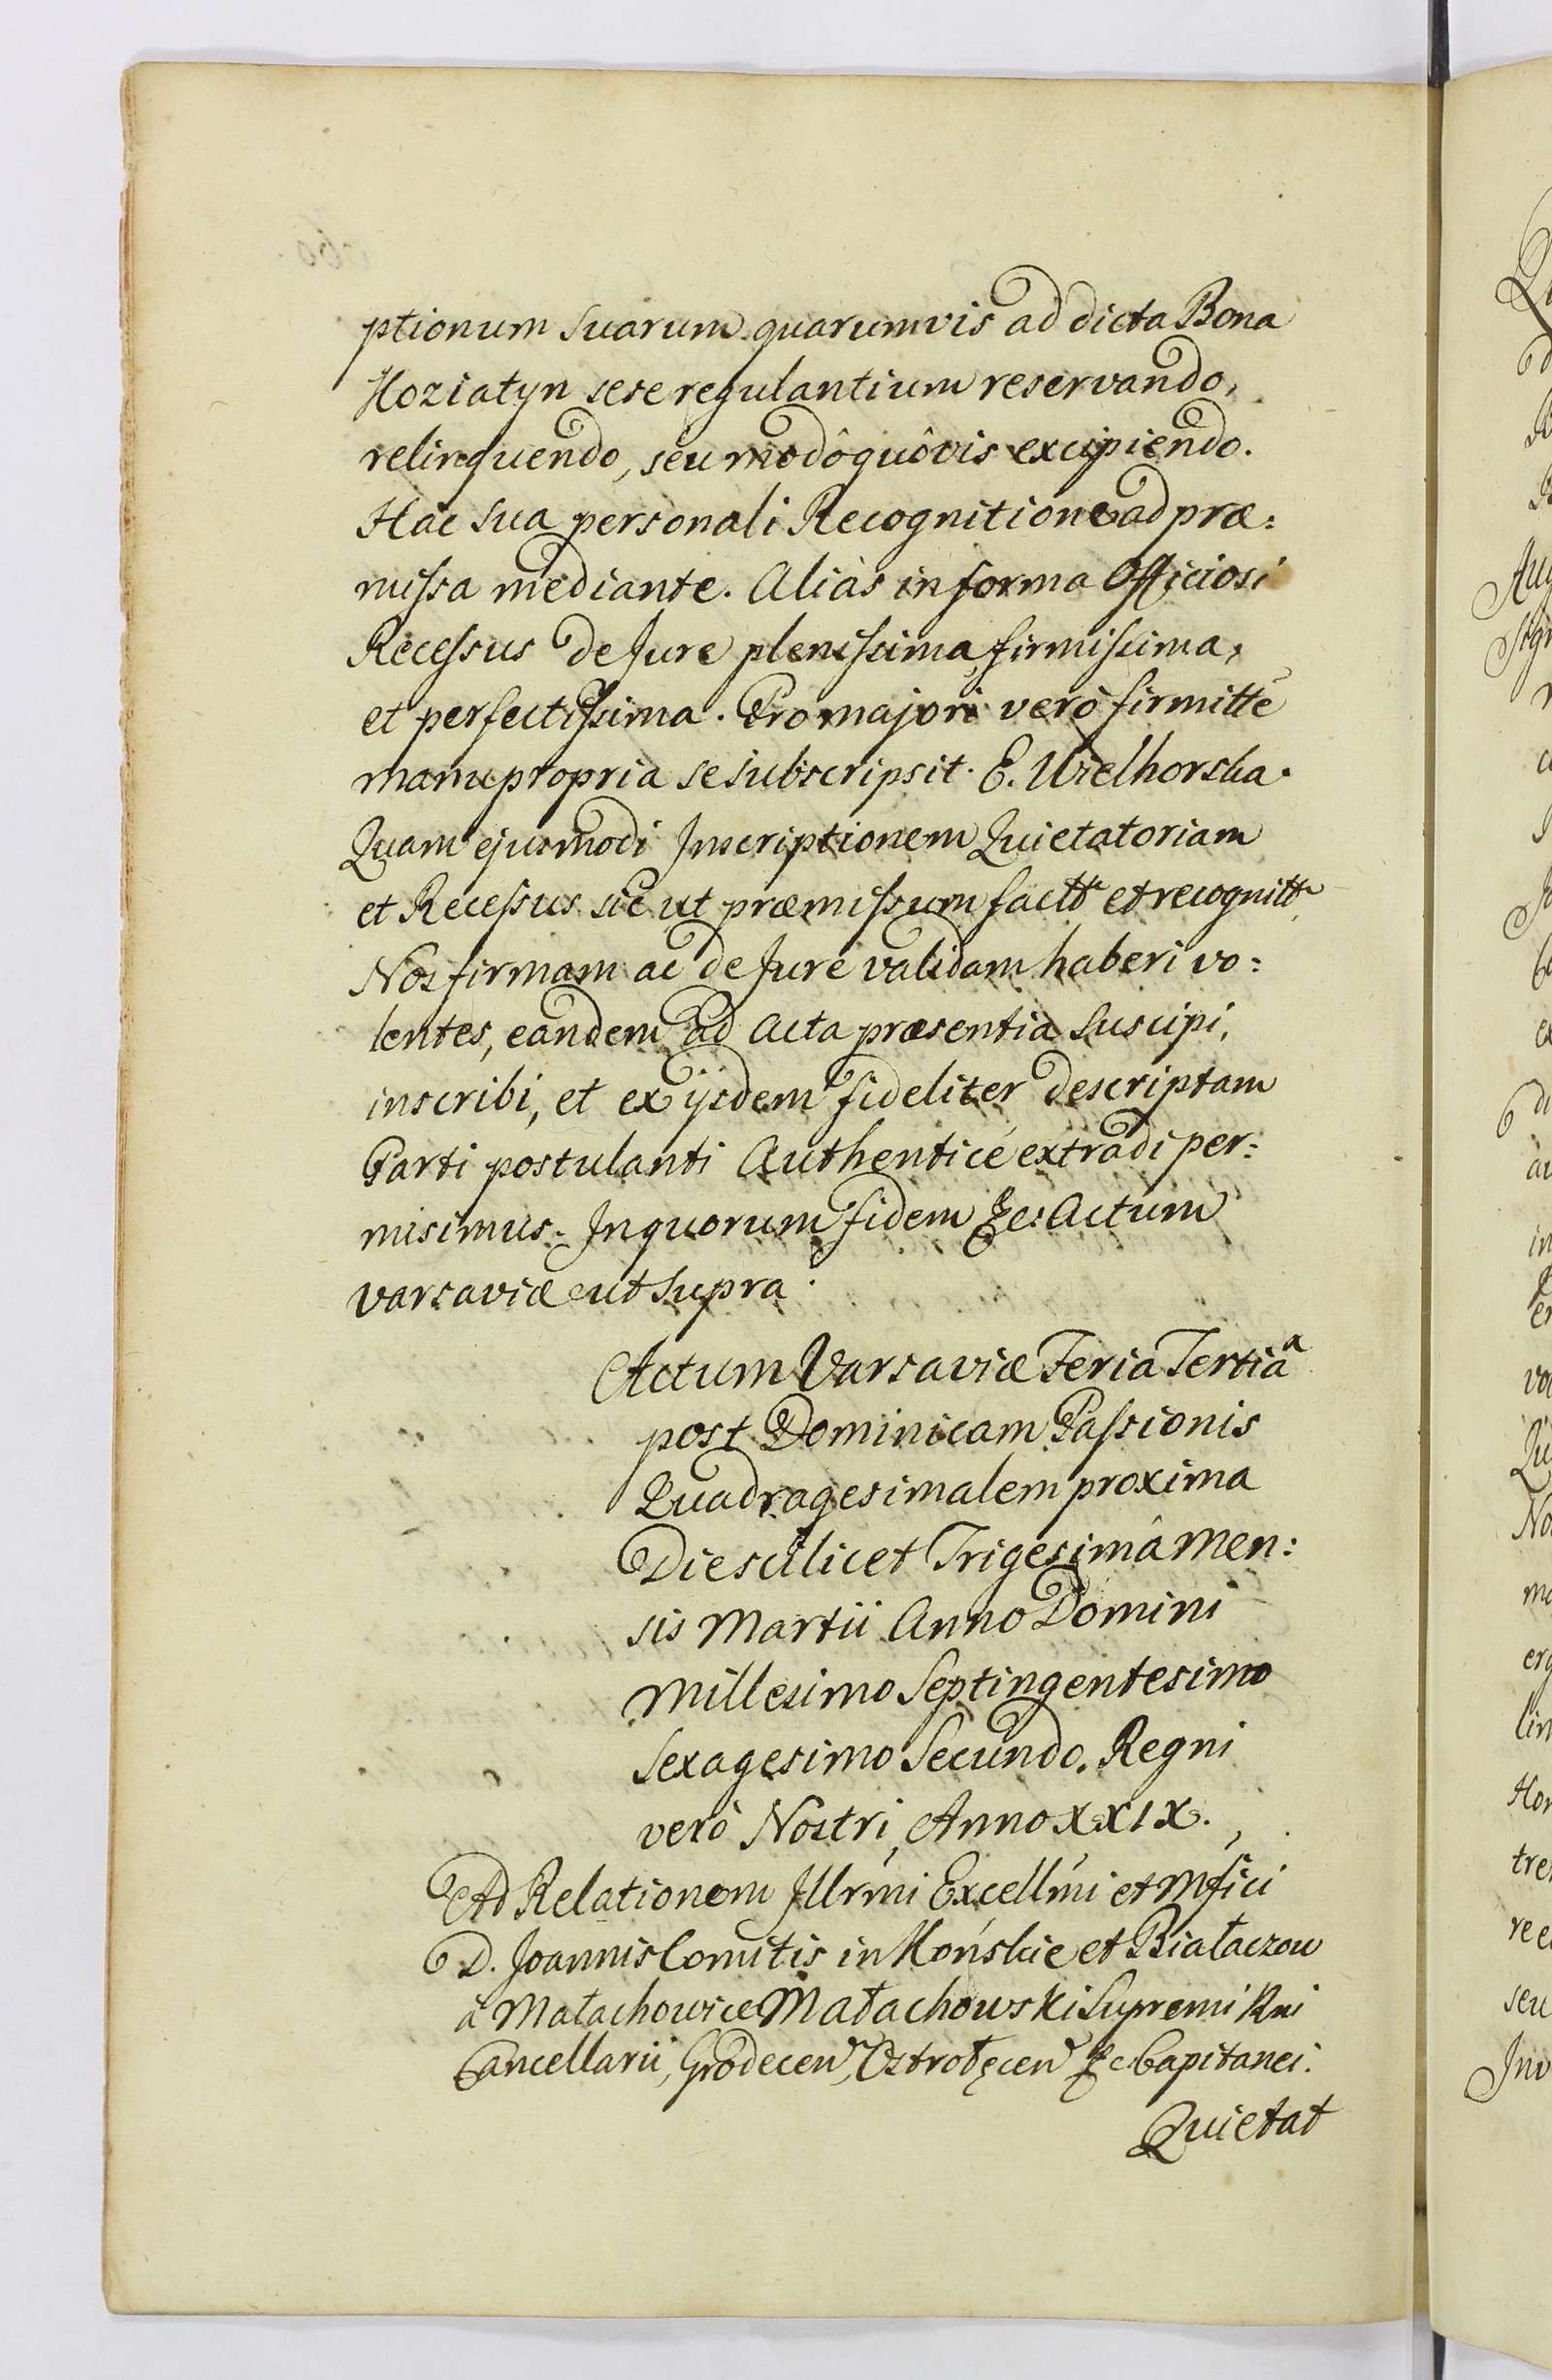 ptionum suarum quarumvis ad dicta Bona
Koziatyn sese regulantium reservando,
relinquendo, seu modô quôvis excipiendo.
Hac sua personali Recognitione ad præ:
missa mediante. Aliàs in forma Officiosi
Recessus de Jure plenissima, firmissima,
et perfectissima. Pro majori verò firmitte
manu propria se subscripsit. E. Wielhorska.
Quam ejusmodi Inscriptionem Quietatoriam
et Recessus sic ut præmissum factt et recognitt
Nos firmam ac de Jure validam haberi vo:
lentes, eandem ad Acta præsentia suscipi,
inscribi, et ex ijsdem fideliter descriptam
Parti postulanti Authenticé extradi per:
misimus. In quorum fidem &c. Actum
Varsaviæ ut supra.
Actum Varsaviæ Feria Tertiâ
post Dominicam Passionis
Quadragesimalem proxima
Die scilicet Trigesimâ Men:
sis Martii Anno Domini
Millesimo Septingentesimo
Sexagesimo Secundo. Regni
verò Nostri, Anno XXIX.
Ad Relationem Illrmi Excellmi et Mfici
D. Joannis Comitis in Końskie et Białaczow
à Małachowice Małachowski Supremi Rni
Cancellarii, Grodecen, Ostrołęcen &c. Capitanei.
Quietat